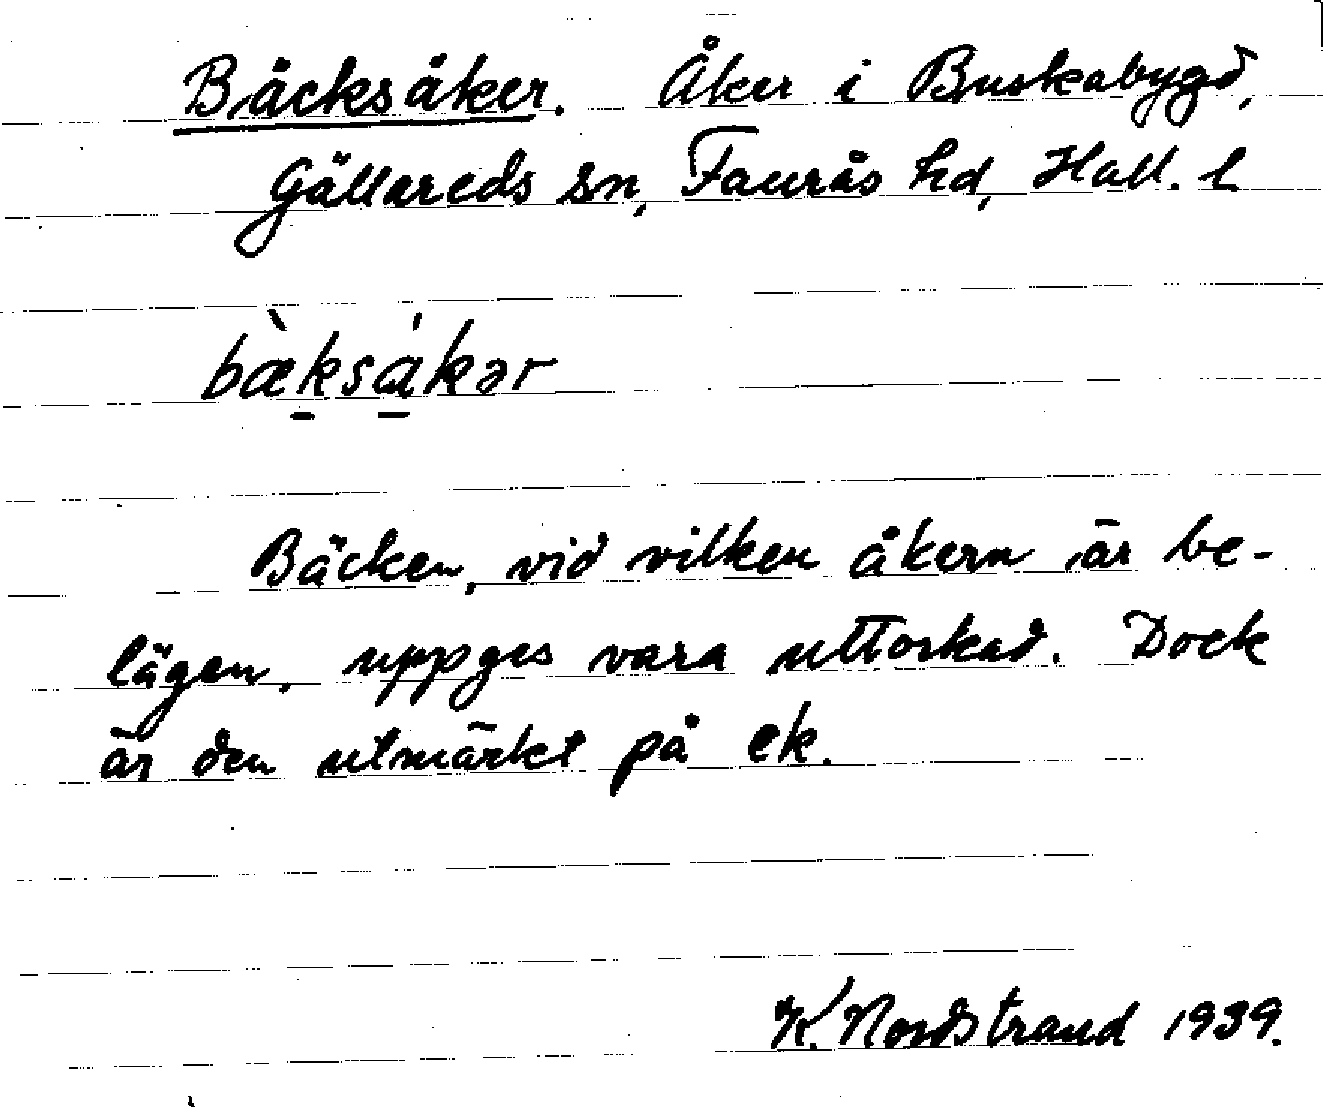 Bäcksåker. Åker i Buskabygd,
Gällareds sn, Faurås hd, Hall. l
bæ̀ksá̱kər
Bäcken, vid vilken åkern är be-
lägen, uppges vara uttorkad. Dock
är den utmärkt på ek.
K. Nordstrand 1939.